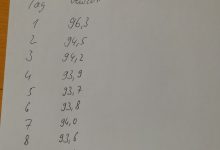 Tag
1 96,3
2 94,5
3 94,2
4 93,9
5 93,7
6 93,8
7 94,0
8 93,6